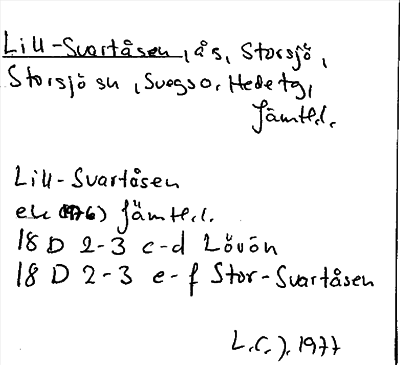 Lill-Svartåsen, ås, Storsjö,
Storsjö sn, Svegs o. Hede tg,
Jämtl.l.
Lill-Svartåsen
ek (1976) Jämtl.l.
18 D 2-3 c-d Lövön
18 D 2-3 e-f Stor-Svartåsen
L.C.J. 1977